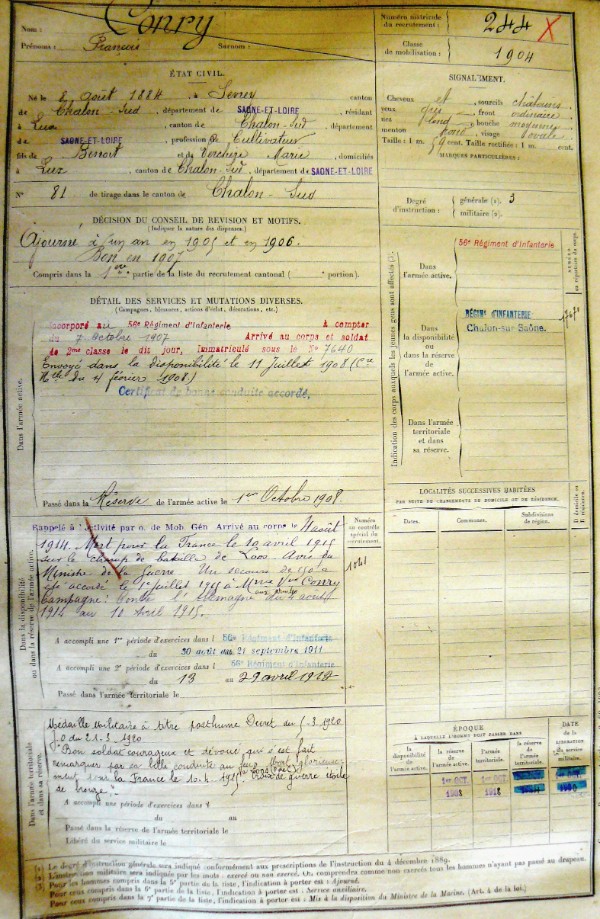 Nom : Conry
Prénoms : François Surnom :
Numéro matricule du recrutement : 244 X
Classe de mobilisation : 1904
ÉTAT CIVIL.
Né le 8 août 1884, à Sevrey canton
de Chalon-Sud, département de SAONE-ET-LOIRE, résidant
à Lux, canton de Chalon-Sud, département
de SAONE-ET-LOIRE, profession de Cultivateur
fils de Benoit et de Marie, domiciliés
à Lux, canton de Chalon-Sud, département de SAONE-ET-LOIRE
N° 81 de tirage dans le canton de Chalon-Sud
SIGNALEMENT.
Cheveux et sourcils châtains
yeux gris front ordinaire
nez bouche moyenne
menton visage ovale
Taille : 1 m. 59 cent. Taille rectifiée : 1 m. cent.
MARQUES PARTICULIÈRES :
Degré d'instruction : générale (1). 3
militaire (2).
DÉCISION DU CONSEIL DE REVISION ET MOTIFS.
(Indiquer la nature des dispenses.)
Ajourné à un an en 1905 et en 1906.
Bon en 1907
Compris dans la 1ère partie de la liste du recrutement cantonal ( portion).
DÉTAIL DES SERVICES ET MUTATIONS DIVERSES.
(Campagnes, blessures, actions d'éclat, décorations, etc.)
Dans l'armée active.
Incorporé au 56e Régiment d'Infanterie à compter
du 7 octobre 1907 Arrivé au corps et soldat
de 2me classe le dit jour, Immatriculé sous le N° 7640
Envoyé dans la disponibilité le 11 Juillet 1908 (Cre
Mlle du 4 février 1908)
Certificat de bonne conduite accordé.
Passé dans la Réserve de l'armée active le 1er Octobre 1908.
Dans la disponibilité ou dans la réserve de l'armée active.
Rappelé à l'activité par o. de Mob. Gén. Arrivé au corps le 4 août
1914. Mort pour la France le 10 avril 1915
sur le champ de bataille de Avis du
Ministre de la Guerre. Un secours de 150 a
été accordé le 1er juillet 1915 à Mme Vve Conry
Campagne : contre l'Allemagne du 4 août
1914 au 10 avril 1915.
Numéro au contrôle spécial du recrutement.
1041
A accompli une 1re période d'exercices dans l 56e Régiment d'Infanterie
du 30 août au 21 septembre 1911
A accompli une 2e période d'exercices dans l 56e Régiment d'Infanterie
du 13 au 29 avril 1912
Passé dans l'armée territoriale le
Dans l'armée territoriale et dans sa réserve.
Médaille militaire à titre posthume Décret du 1920
J.O. du 1920
"Bon soldat courageux et dévoué qui s'est fait
remarquer par sa belle conduite au feu. Mort glorieuse-
ment pour la France le 10.4.1915 Croix de guerre étoile
de bronze".
A accompli une période d'exercices dans l
du au
Passé dans la réserve de l'armée territoriale le
Libéré du service militaire le
Indication des corps auxquels les jeunes gens sont affectés (3).
Dans l'armée active.
56e Régiment d'Infanterie
Dans la disponibilité ou dans la réserve de l'armée active.
RÉGIMt D'INFANTERIE
Chalon-sur-Saône.
Dans l'armée territoriale et dans sa réserve.
LOCALITÉS SUCCESSIVES HABITÉES
PAR SUITE DE CHANGEMENTS DE DOMICILE OU DE RÉSIDENCE.
Dates. Communes. Subdivisions de région.
ÉPOQUE
À LAQUELLE L'HOMME DOIT PASSER DANS
la disponibilité de l'armée active.
la réserve de l'armée active.
l'armée territoriale.
la réserve de l'armée territoriale.
DATE de la LIBÉRATION du service militaire.
1er OCT 1er OCT
1918
(1) Le degré d'instruction générale sera indiqué conformément aux prescriptions de l'instruction du 4 décembre 1889.
(2) L'instruction militaire sera indiquée par les mots : exercé ou non exercé. On comprendra comme non exercés tous les hommes n'ayant pas passé au drapeau.
(3) Pour les hommes compris dans la 5e partie de la liste, l'indication à porter est : Ajourné.
Pour ceux compris dans la 6e partie de la liste, l'indication à porter est : Service auxiliaire.
Pour ceux compris dans la 7e partie de la liste, l'indication à porter est : Mis à la disposition du Ministre de la Marine. (Art. 4 de la loi.)